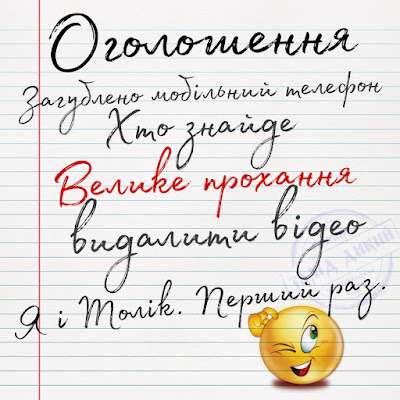 Оголошення
Загублено мобільний телефон
Хто знайде
Велике прохання
видалити відео
Я і Толік. Перший раз.